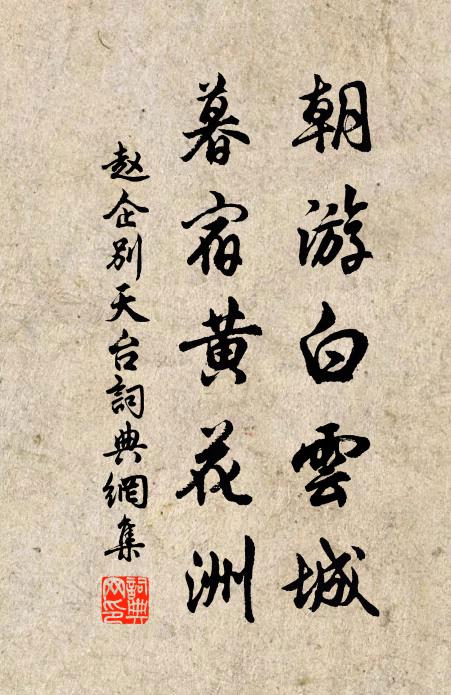 朝游白雲城
暮宿黄花洲
赵企别天台詞典網集
詞典網印